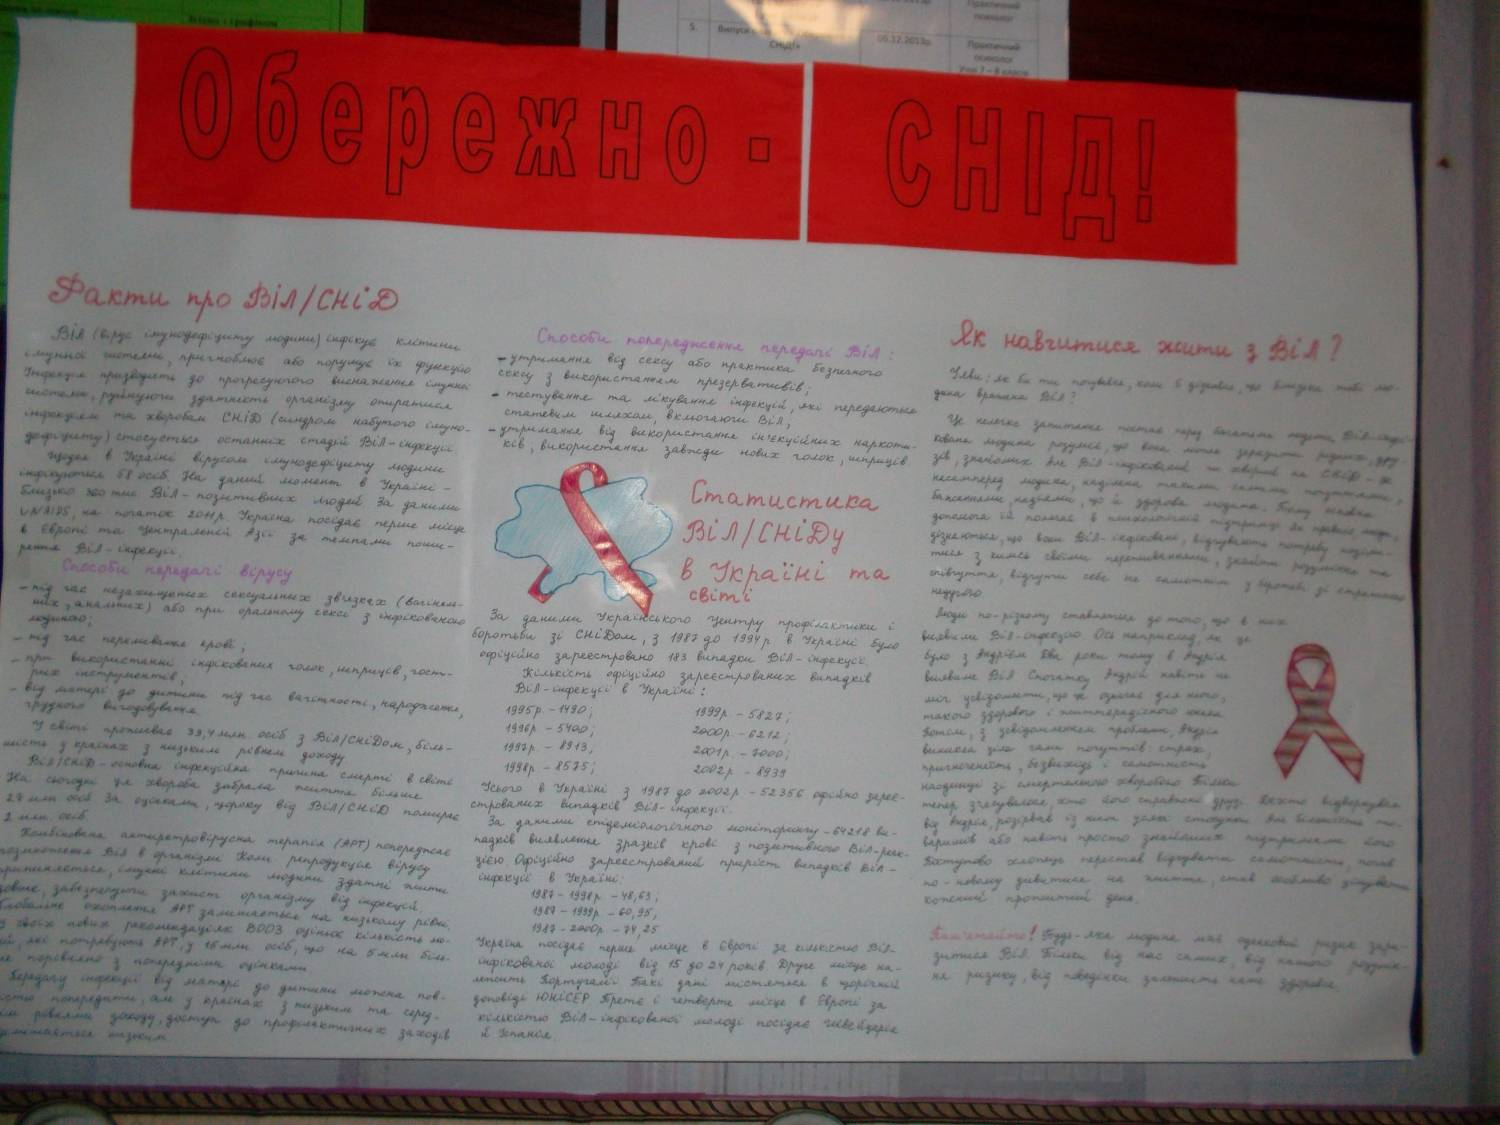 Практичний
психолог
5.
Випуск
СНІД!»
05.12.2013р
Практичний
психолог
Учні 7 – 8 класів
Обережно - СНІД!
Факти про ВіЛ/СНіД
ВіЛ (вірус імунодефіциту людини) інфікує клітини
імунної системи, пригноблює або порушує їх функцію
Інфекція призводить до прогресуючого виснаження імунної
системи, руйнуючи здатність організму опиратися
інфекціям та хворобам СНіД (синдром набутого імуно-
дефіциту) стосується останніх стадій ВіЛ-інфекції
Щодня в Україні вірусом імунодефіциту людини
інфікуються 58 осіб. На даний момент в Україні -
близько 360 тис ВіЛ-позитивних людей За даними
UNAIDS, на початок 2011р. Україна посідає перше місце
в Європі та Центральній Азії за темпами поши-
рення ВіЛ-інфекції.
Способи передачі вірусу
- під час незахищених сексуальних зв'язках (вагіналь-
них, анальних) або при оральному сексі з інфікованою
людиною;
- під час переливання крові;
- при використанні інфікованих голок, шприців, гост-
рих інструментів;
- від матері до дитини під час вагітності, народження,
грудного вигодовування.
У світі проживає 33,4 млн. осіб з ВіЛ/СНіДом, біль-
шість у країнах з низьким рівнем доходу
ВіЛ/СНіД - основна інфекційна причина смерті в світі
На сьогодні ця хвороба забрала життя більше
27 млн осіб За оцінками, щороку від ВіЛ/СНіД помирає
2 млн. осіб.
Комбінована антиретровірусна терапія (АРТ) попереджає
розмноження ВіЛ в організмі Коли репродукція вірусу
припиняється, імунні клітини людини здатні жити
довше, забезпечуючи захист організму від інфекцій.
Глобальне охоплення АРТ залишається на низькому рівні.
У своїх нових рекомендаціях ВООЗ оцінює кількість лю-
дей, які потребують АРТ, у 15 млн. осіб, що на 5 млн біль-
ше порівняно з попередніми оцінками
Передачу інфекції від матері до дитини можна пов-
ністю попередити, але у країнах з низьким та серед-
нім рівнями доходу, доступ до профілактичних заходів
залишається низьким
Способи попередження передачі ВіЛ:
- утримання від сексу або практика безпечного
сексу з використанням презервативів;
- тестування та лікування інфекцій, які передаються
статевим шляхом, включаючи ВіЛ;
- утримання від використання ін'єкційних наркоти-
ків, використання завжди нових голок, шприців
Статистика
ВіЛ/СНіДу
в Україні та
світі
За даними Українського центру профілактики і
боротьби зі СНіДом, з 1987 до 1994р в Україні було
офіційно зареєстровано 183 випадки ВіЛ-інфекції.
Кількість офіційно зареєстрованих випадків
ВіЛ-інфекції в Україні:
1995р. - 1490;
1996р - 5400;
1997р. - 8913;
1998р - 8575;
1999р. - 5827;
2000р. - 6212;
2001р. - 7000;
2002р. - 8939
Усього в Україні з 1987 до 2002р - 52356 офійно зареє-
строваних випадків ВіЛ-інфекції.
За даними епідеміологічного моніторингу - 64218 ви-
падків виявлення зразків крові з позитивною ВіЛ-реак-
цією Офіційно зареєстрований приріст випадків ВіЛ-
інфекції в Україні:
1987 - 1998р - 48,63;
1987 - 1999р. - 60,95;
1987 - 2000р - 74,25
Україна посідає перше місце в Європі за кількістю ВіЛ-
інфікованої молоді від 15 до 24 років. Друге місце на-
лежить Португалії Такі дані містяться в щорічній
доповіді ЮНіСЕР Третє і четверте місце в Європі за
кількістю ВіЛ-інфікованої молоді посідає Швейцарія
й Іспанія.
Як навчитися жити з ВіЛ?
Уяви: як би ти почувався, коли б дізнався, що близька тобі лю-
дина вражена ВіЛ?
Це нелегке запитання постає перед багатьма людьми, ВіЛ-інфі-
кована людина розуміє, що вона могла заразити рідних, дру-
зів, знайомих Але ВіЛ-інфікований чи хворий на СНіД - це
насамперед людина, наділена такими самими почуттями,
бажаннями, надіями, що й здорова людина. Тому
допомога їй полягає в психологічній підтримці Як правило люди,
дізнаються, що вони ВіЛ-інфіковані, відчувають потребу поділи-
тися з кимсь своїми переживаннями, знайти розуміння та
співчуття, відчути себе не самотнім з
недугою.
Люди по-різному ставляться до того, що в них
виявили ВіЛ-інфекцію Ось наприклад, як це
було з Андрієм Два роки тому в Андрія
виявили ВіЛ Спочатку Андрій навіть не
міг усвідомити, що це означає для нього,
такого здорового і життєрадісного юнака
Потім, з усвідомленням проблеми, Андрія
виникла ціла гама почуттів: страх,
пригніченість, безвихідь і самотність
наодинці зі смертельною хворобою Тільки
тепер з'ясувалося, хто його справжні друзі Дехто відвернувся
від Андрія, розірвав із ним усякі стосунки Але більшість то-
варишів або навіть просто знайомих підтримали його
Поступово хлопець перестав відчувати самотність, почав
по-новому дивитися на життя, став особливо цінувати
кожний прожитий день.
Пам'ятайте! Будь-яка людина має однаковий ризик зара-
зитися ВіЛ Тільки від нас самих, від нашого розумін-
ня ризику, від поведінки залежить наше здоров'я.